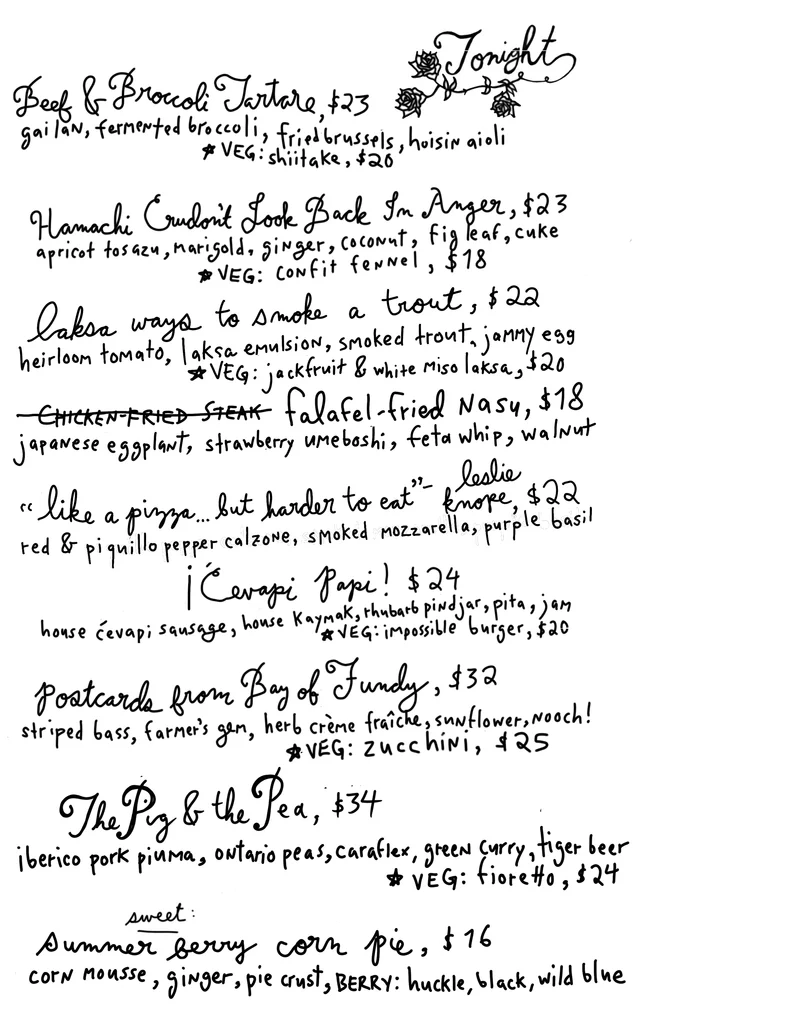 Tonight
Beef & Broccoli Tartare, $23
gai lan, fermented broccoli, fried brussels, hoisin aioli
★ VEG: shiitake, $20
Hamachi Crudon't Look Back In Anger, $23
apricot tosazu, marigold, ginger, coconut, fig leaf, cuke
★ VEG: confit fennel, $18
laksa ways to smoke a trout, $22
heirloom tomato, laksa emulsion, smoked trout, jammy egg
★ VEG: jackfruit & white miso laksa, $20
CHICKEN-FRIED STEAK falafel-fried Nasu, $18
japanese eggplant, strawberry umeboshi, feta whip, walnut
"like a pizza... but harder to eat" - leslie knope, $22
red & piquillo pepper calzone, smoked mozzarella, purple basil
¡Ćevapi Papi! $24
house ćevapi sausage, house kaymak, rhubarb pindjar, pita, jam
★ VEG: impossible burger, $20
Postcards from Bay of Fundy, $32
striped bass, farmer's gem, herb crème fraîche, sunflower, nooch!
★ VEG: zucchini, $25
The Pig & the Pea, $34
iberico pork pluma, ontario peas, caraflex, green curry, tiger beer
★ VEG: fioretto, $24
sweet:
summer berry corn pie, $16
corn mousse, ginger, pie crust, BERRY: huckle, black, wild blue